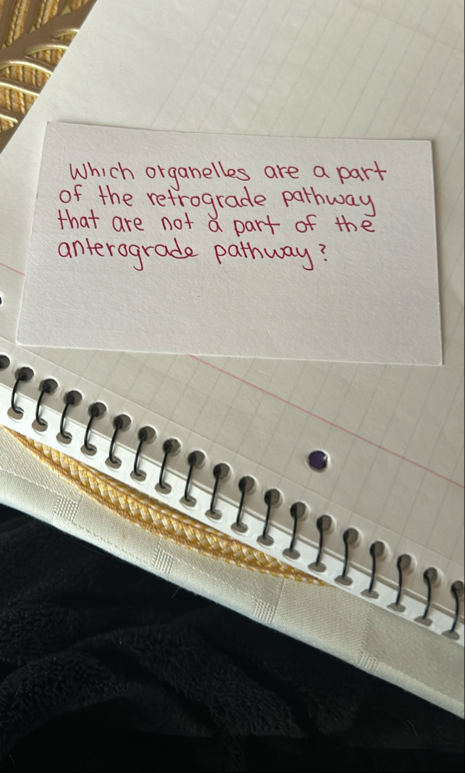 Which organelles are a part
of the retrograde pathway
that are not a part of the
anterograde pathway?